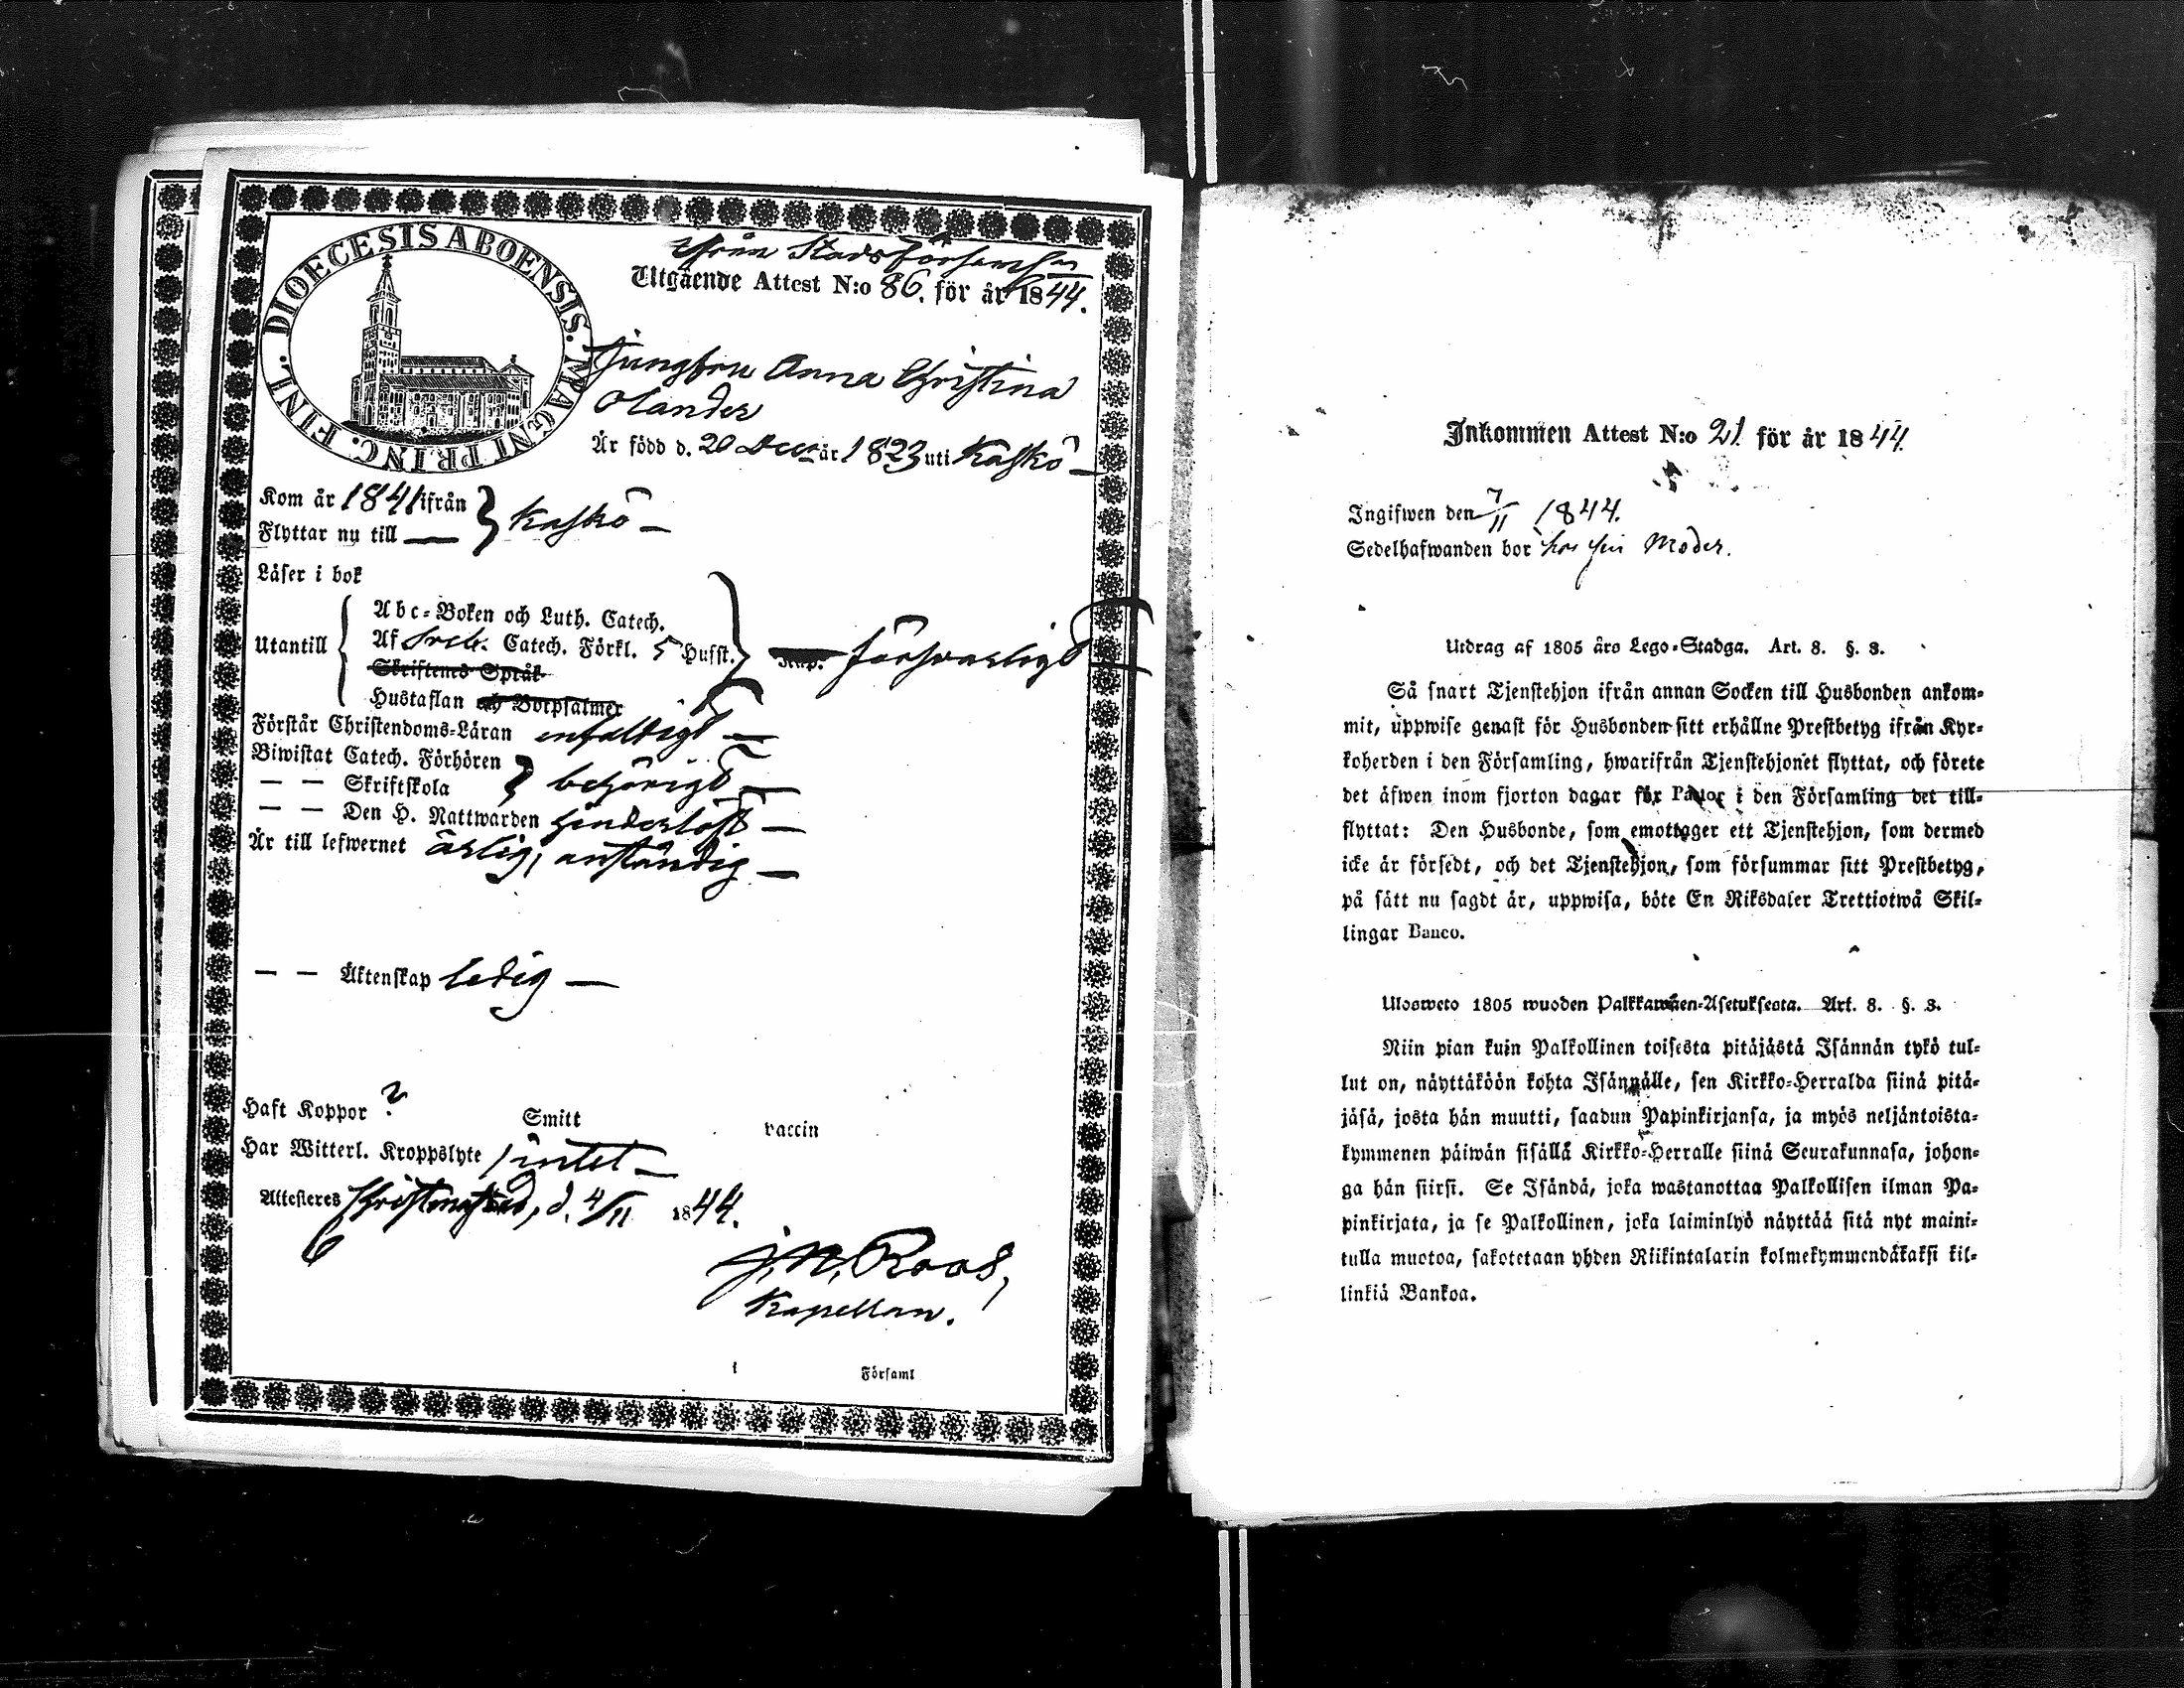 DIOECESIS ABOENSIS. MAGNI PRINC. FINL.
Från Stadsförsamln
Utgående Attest N:o 86. för år 1844.
Jungfru Anna Christina
Olander
Är född d. 20 Decr år 1823 uti Kaskö —
Kom år 1841 ifrån
Flyttar nu till — } Kaskö —
Läser i bok
Abc-Boken och Luth. Catech.
Utantill { Af Sveb. Catech. Förkl. 5 Husst. } försvarligt
Skriftens Språk
Hustaflan och Botpsalmer
Förstår Christendoms-Läran enfaldigt —
Biwistat Catech. Förhören
— — Skriftskola } behörigt —
— — Den H. Nattwarden hinderlöst —
Är till lefwernet ärlig, anständig —
— — Äktenskap ledig —
Haft Koppor ? Smitt vaccin
Har Witterl. Kroppslyte intet —
Attesteres Christinestad, d. 4/11 1844.
J. N. Roos,
Kapellan.
i Församl
Inkommen Attest N:o 21 för år 1844.
Ingifwen den 7/11 1844.
Sedelhafwanden bor hos sin Moder.
Utdrag af 1805 års Lego-Stadga. Art. 8. §. 3.
Så snart Tjenstehjon ifrån annan Socken till Husbonden ankom-
mit, uppwise genast för Husbonden sitt erhållne Prestbetyg ifrån Kyr-
koherden i den Församling, hwarifrån Tjenstehjonet flyttat, och förete
det äfwen inom fjorton dagar för Pastor i den Församling det till-
flyttat: Den Husbonde, som emottager ett Tjenstehjon, som dermed
icke är försedt, och det Tjenstehjon, som försummar sitt Prestbetyg,
på sätt nu sagdt är, uppwisa, böte En Riksdaler Trettiotwå Skil-
lingar Banco.
Ulosweto 1805 wuoden Palkkawäen-Asetuksesta. Art. 8. §. 3.
Niin pian kuin Palkollinen toisesta pitäjästä Isännän tykö tul-
lut on, näyttäköön kohta Isännälle, sen Kirkko-Herralda siinä pitä-
jäsä, josta hän muutti, saadun Papinkirjansa, ja myös neljäntoista-
kymmenen päiwän sisällä Kirkko-Herralle siinä Seurakunnasa, johon-
ga hän siirsi. Se Isändä, joka wastanottaa Palkollisen ilman Pa-
pinkirjata, ja se Palkollinen, joka laiminlyö näyttää sitä nyt maini-
tulla muotoa, sakotetaan yhden Riikintalarin kolmekymmendäkaksi kil-
linkiä Bankoa.